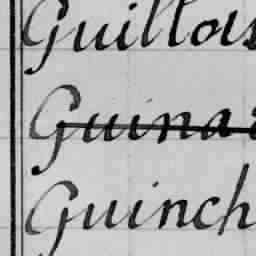 Guillou
Guina
Guinch